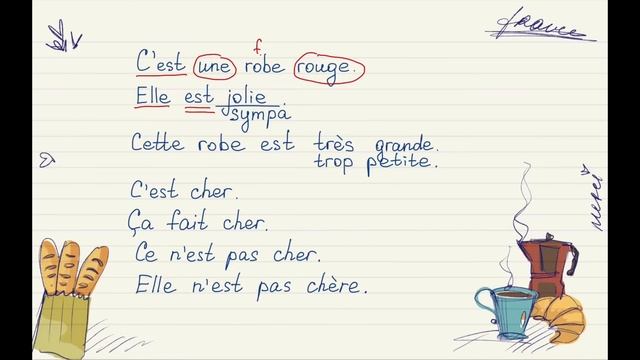 france
f.
C'est une robe rouge.
Elle est jolie.
sympa
Cette robe est très grande.
trop petite.
C'est cher.
Ça fait cher.
Ce n'est pas cher.
Elle n'est pas chère.
merci